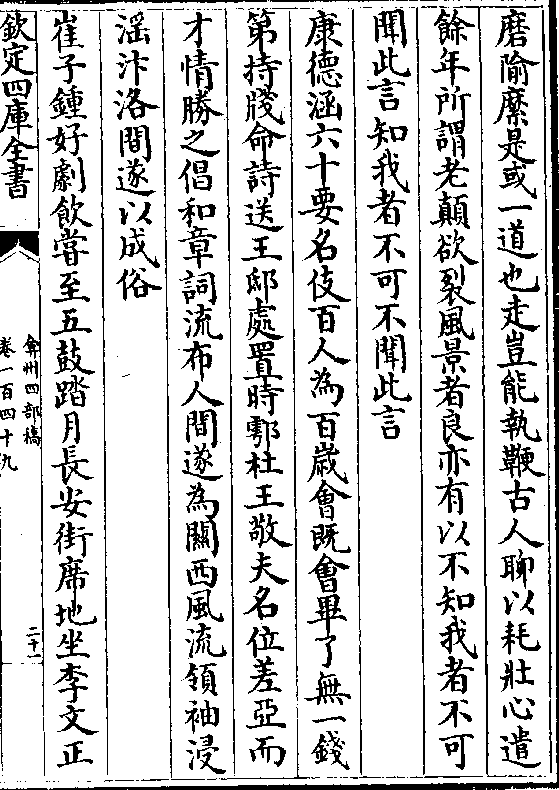 磨隃糜是或一道也走豈能執鞭古人聊以耗壯心遣
餘年所謂老顛欲裂風景者良亦有以不知我者不可
聞此言知我者不可不聞此言
康德涵六十要名伎百人為百歲會既會畢了無一錢
第持牋命詩送王邸處置時鄠杜王敬夫名位差亞而
才情勝之倡和章詞流布人間遂為關西風流領袖浸
淫汴洛間遂以成俗
崔子鍾好劇飲嘗至五鼓踏月長安街席地坐李文正
欽定四庫全書
弇州四部稿
卷一百四十九
二十一